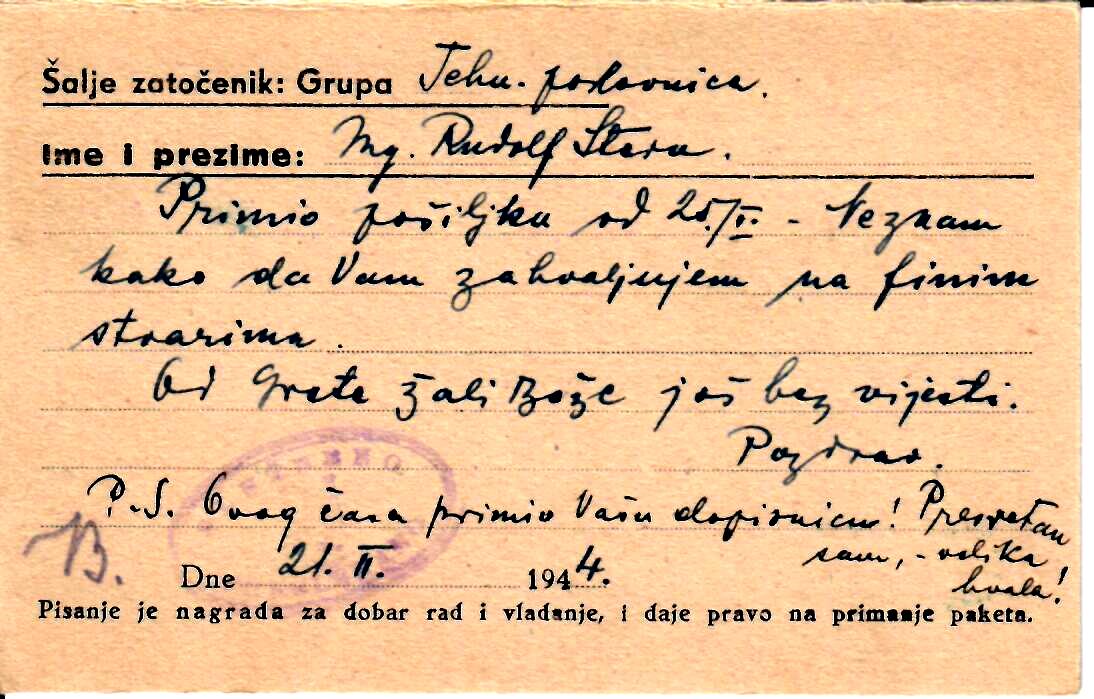 Šalje zatočenik: Grupa Tehn. poslovnica.
Ime i prezime: Mg. Rudolf Stern.
Primio pošiljku od 25./I. - Neznam
kako da Vam zahvaljujem na finim
stvarima.
Od Grete žali Bože još bez vijesti.
Pozdrav.
P.S. Ovog časa primio Vašu dopisnicu! Presretan
sam, - velika
hvala!
B.
Dne 21. II. 1944.
Pisanje je nagrada za dobar rad i vladanje, i daje pravo na primanje paketa.